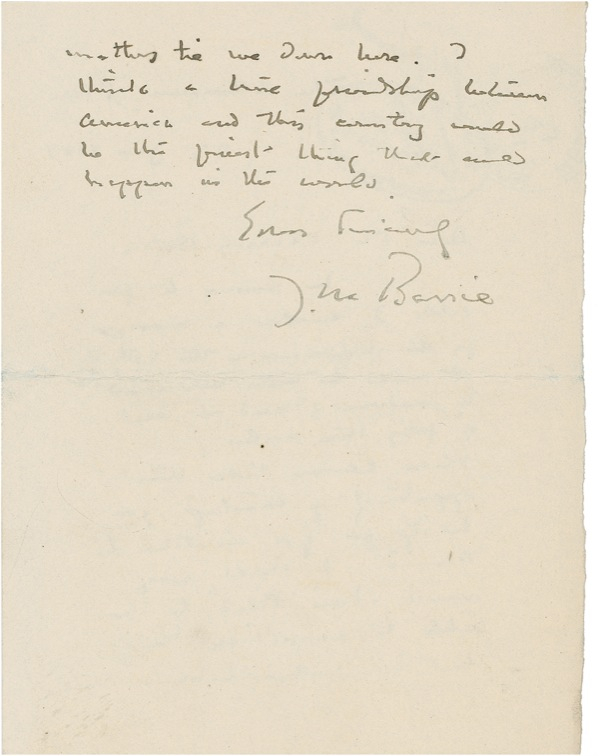 matters tie me down here. I
think a true friendship between
America and this country would
be the finest thing that could
happen in the world.
Yours sincerely
J. M. Barrie